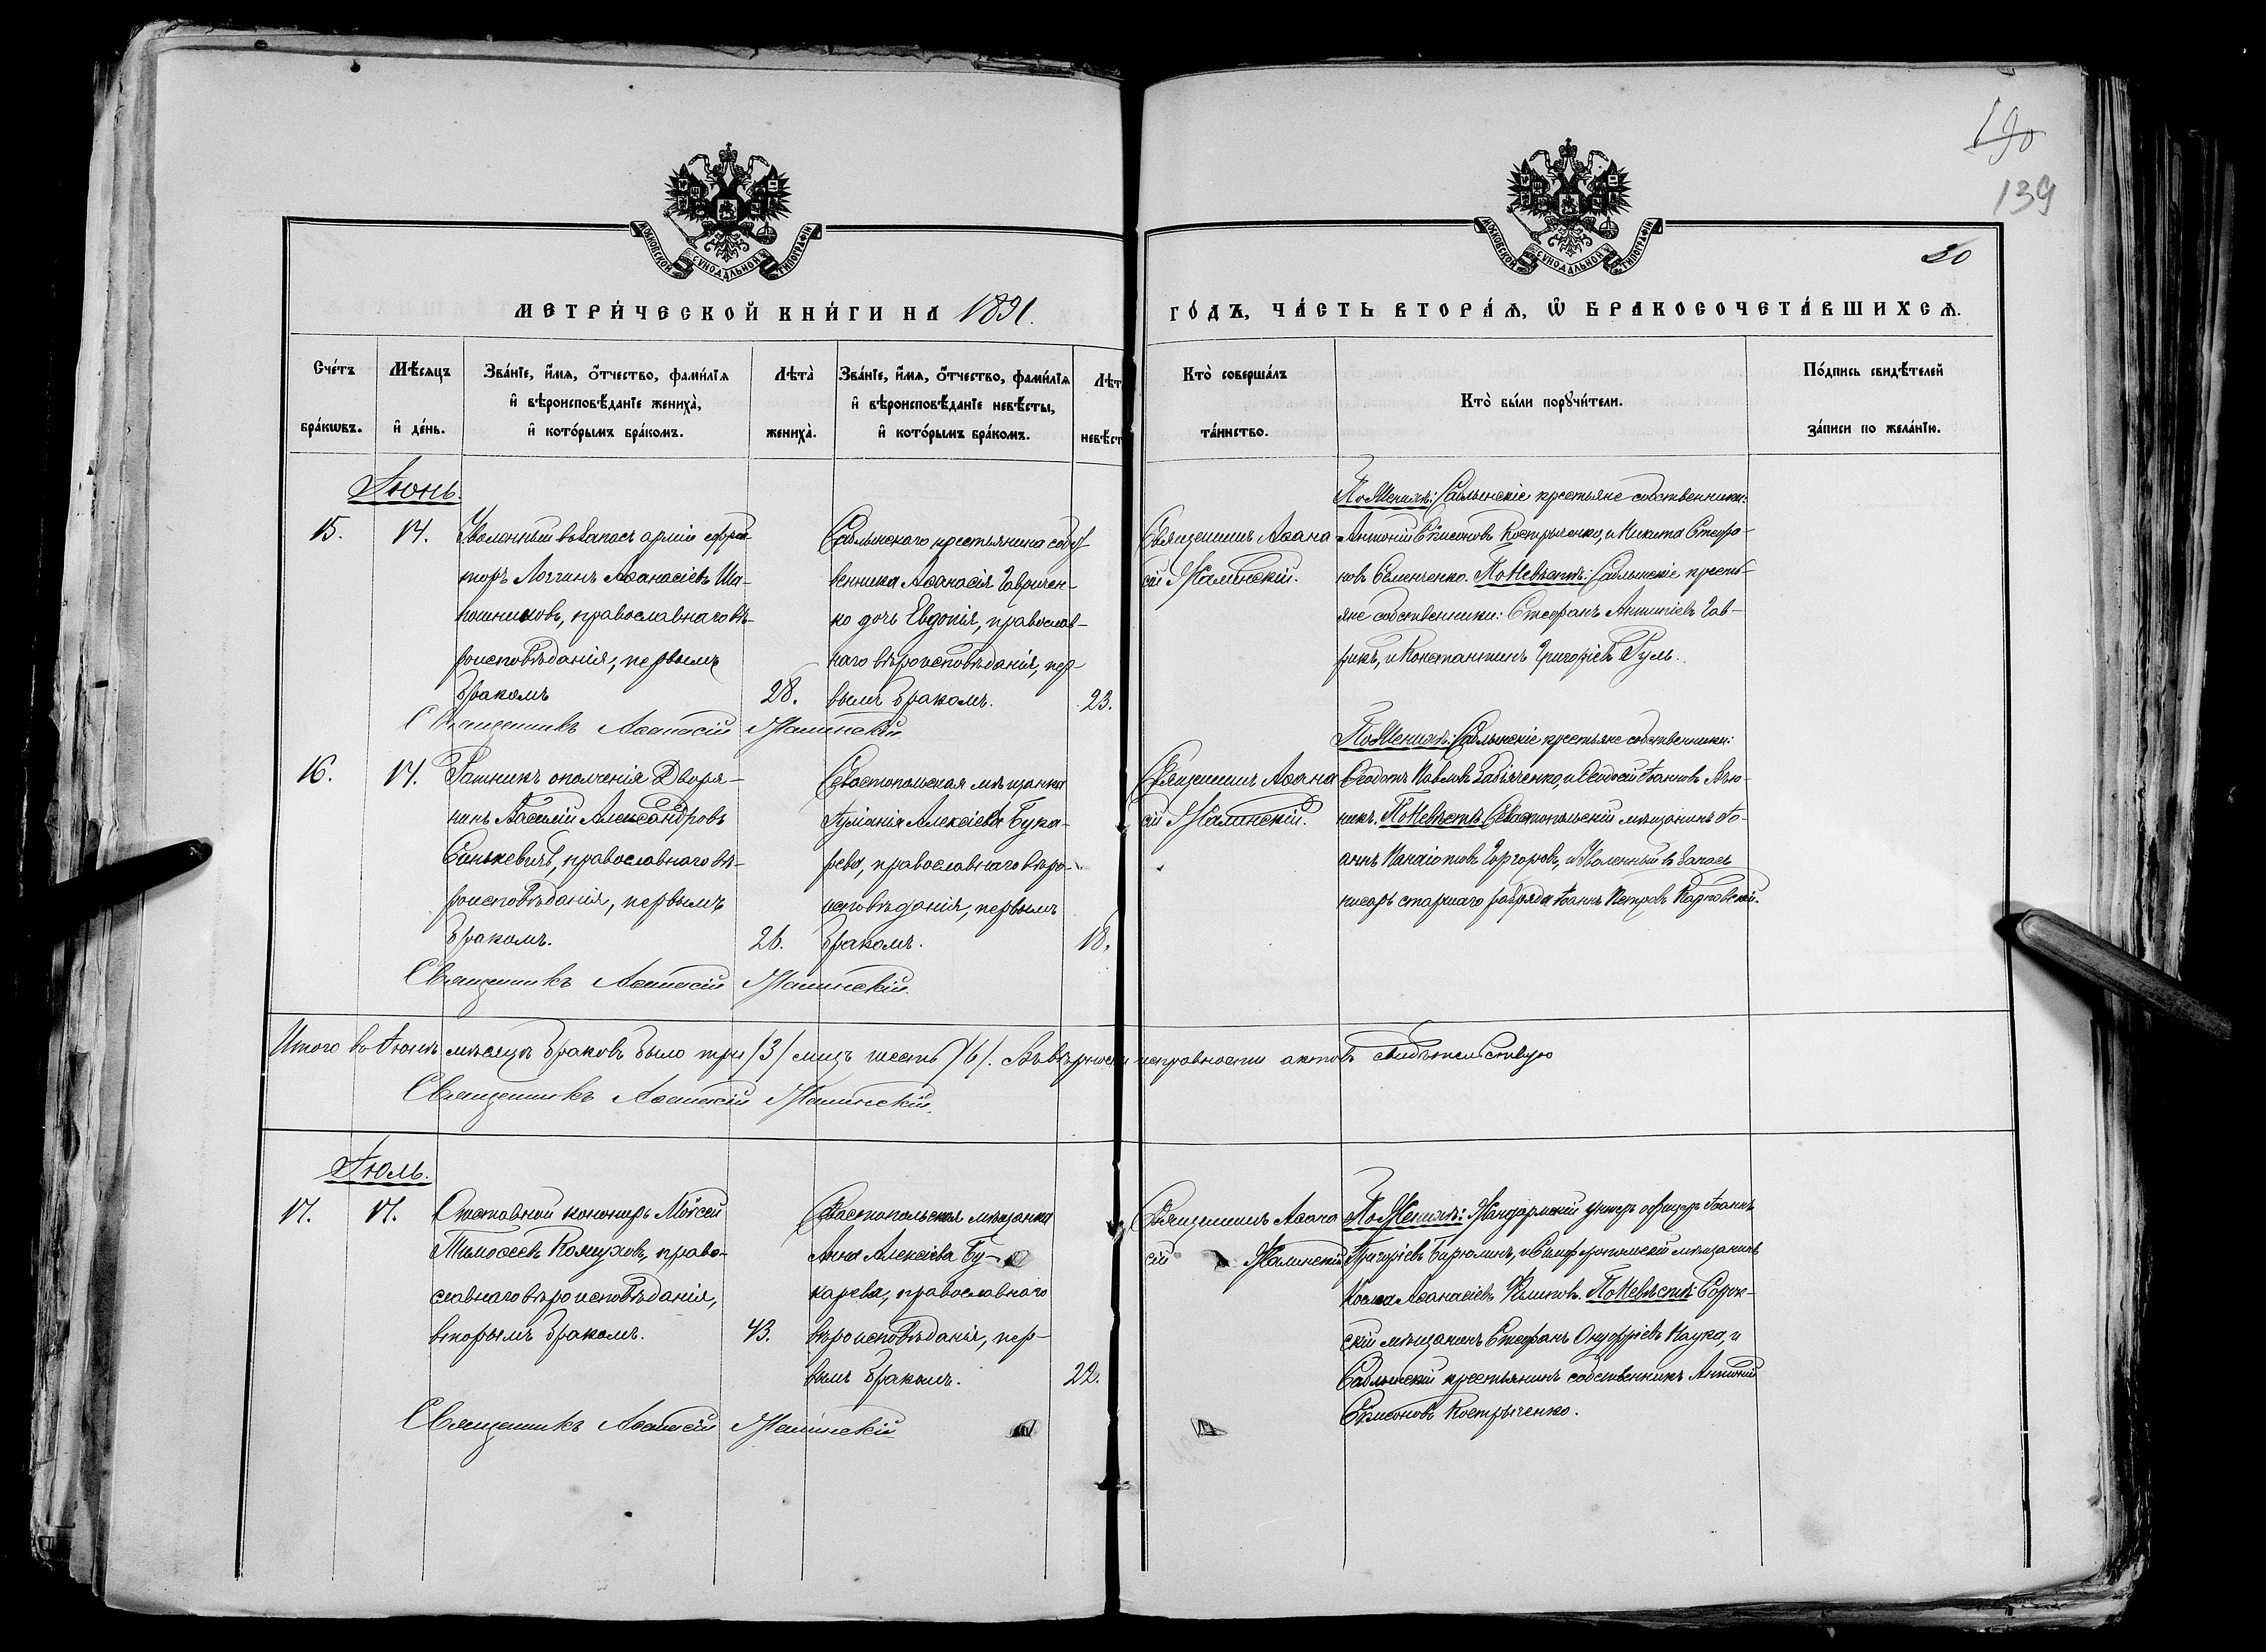 190
139
МОСКОВСКОЙ СѴНОДАЛЬНОЙ ТИПОГРАФІИ
МОСКОВСКОЙ СѴНОДАЛЬНОЙ ТИПОГРАФІИ
30
МЕТРИ́ЧЕСКОЙ КНИ́ГИ НА 1891.
ГО́ДЪ, ЧА́СТЬ ВТОРА́Ѧ, Ѡ҆ БРАКОСОЧЕТА́ВШИХСѦ.
Сче́тъ бра́кѡвъ.
Мѣ́сяцъ и҆ де́нь.
Зва́нїе, и҆́мѧ, ѻ҆́тчество, фами́лїѧ
и҆ вѣроисповѣ́данїе жениха̀,
и҆ кото́рымъ бра́комъ.
Лѣта̀ жениха̀.
Зва́нїе, и҆́мѧ, ѻ҆́тчество, фами́лїѧ
и҆ вѣроисповѣ́данїе невѣ́сты,
и҆ кото́рымъ бра́комъ.
Лѣт
невѣст
Кто̀ соверша́лъ
та́инство.
Кто̀ бы́ли порꙋчи́тели.
По́дпись свидѣ́телей
за́писи по жела́нїю.
Іюнь.
15.
17.
Уволенный въ запасъ арміи ефрей-
торъ Логгинъ Аѳанасіевъ Ша-
пошниковъ, православнаго вѣ-
роисповѣданія, первымъ
бракомъ
28.
Саблынскаго крестьянина собст-
венника Аѳанасія Гавричен-
ко дочь Евдокія, православ-
наго вѣроисповѣданія, пер-
вымъ бракомъ.
23.
Священникъ Аѳана
сій Жалинскій.
По Женихѣ: Саблынскіе крестьяне собственники:
Антоній Сѵмеоновъ Костырченко, и Никита Стефа-
новъ Семенченко. По Невѣстѣ: Саблынскіе кресть-
яне собственники: Стефанъ Антипіевъ Гав-
рикъ, и Константинъ Григоріевъ Гуль.
Священникъ Аѳанасій Жалинскій
16.
17.
Ратникъ ополченія Дворя-
нинъ Василій Александровъ
Синькевичъ, православнаго вѣ-
роисповѣданія, первымъ
бракомъ.
26.
Севастопольская мѣщанка
Іуліанія Алексіева Бука-
рева, православнаго вѣро-
исповѣданія, первымъ
бракомъ.
18.
Священникъ Аѳана
сій Жалинскій.
По Женихѣ: Саблынскіе крестьяне собственники:
Ѳеодотъ Павловъ и Ѳеодосій Іоанновъ
По Невѣстѣ: Севастопольскій мѣщанинъ Іо-
аннъ Панаіотовъ и Уволенный въ запасъ
писарь старшаго разряда Іоаннъ Петровъ Карповскій.
Священникъ Аѳанасій Жалинскій.
Итого въ Іюнѣ мѣсяцѣ браковъ было три /3/ лицъ шесть /6/. Въ вѣрности и исправности актовъ свидѣтельствую
Священникъ Аѳанасій Жалинскій.
Іюль.
17.
17.
Отставной канониръ Моѵсей
Тимоѳеевъ право-
славнаго вѣроисповѣданія,
вторымъ бракомъ.
43.
Севастопольская мѣщанка
Анна Алексіева Бу-
карева, православнаго
вѣроисповѣданія, пер-
вымъ бракомъ.
22.
Священникъ Аѳана
сій Жалинскій
По Женихѣ: Жандармскій унтеръ офицеръ Іоаннъ
Григоріевъ Бирюлинъ, и Симферопольскій мѣщанинъ
Косма Аѳанасіевъ Филиповъ. По Невѣстѣ: Сорок-
скій мѣщанинъ Стефанъ Онуфріевъ Наука, и
Саблынскій крестьянинъ собственникъ Антоній
Сѵмеоновъ Костырченко.
Священникъ Аѳанасій Жалинскій